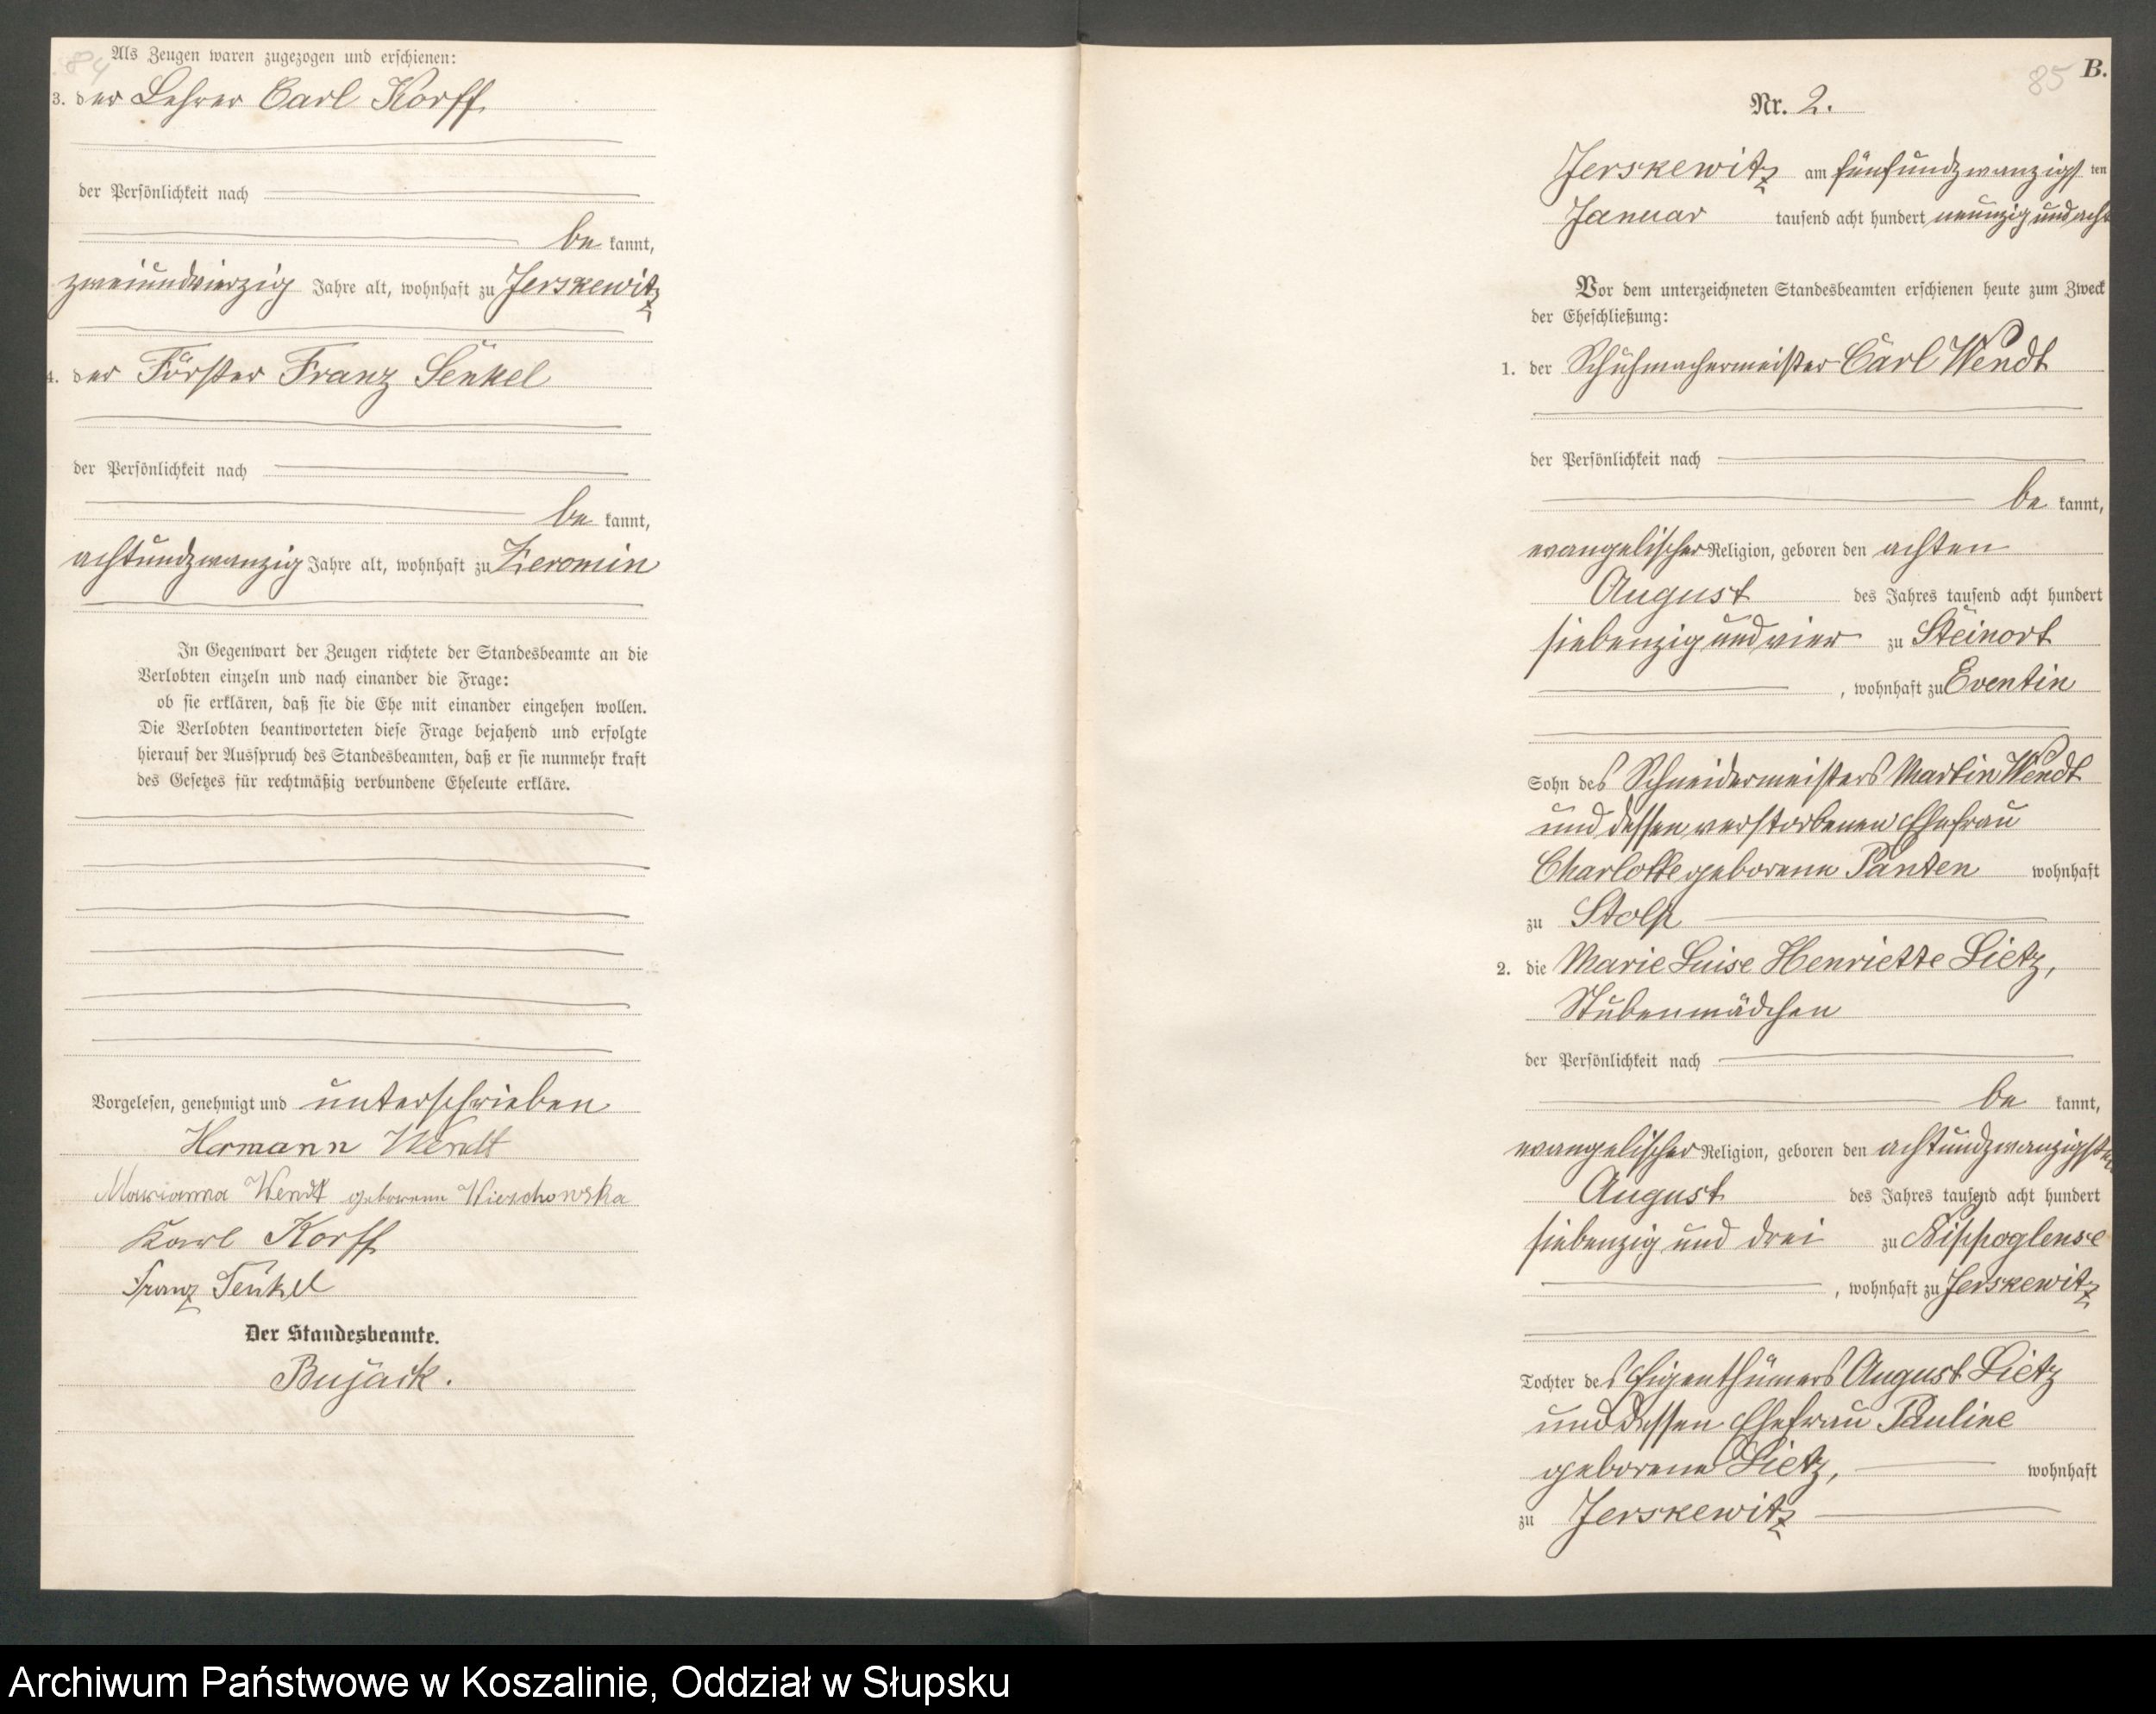 84
Als Zeugen waren zugezogen und erschienen:
3. der Lehrer Carl Korff
der Persönlichkeit nach
be kannt,
zweiundvierzig Jahre alt, wohnhaft zu Jerskewitz
4. der Förster Franz Senkel
der Persönlichkeit nach
be kannt,
achtundzwanzig Jahre alt, wohnhaft zu Zeromin
In Gegenwart der Zeugen richtete der Standesbeamte an die
Verlobten einzeln und nach einander die Frage:
ob sie erklären, daß sie die Ehe mit einander eingehen wollen.
Die Verlobten beantworteten diese Frage bejahend und erfolgte
hierauf der Ausspruch des Standesbeamten, daß er sie nunmehr kraft
des Gesetzes für rechtmäßig verbundene Eheleute erkläre.
Vorgelesen, genehmigt und unterschrieben
Hermann Wendt
Marianna Wendt geborene
Karl Korff
Franz Senkel
Der Standesbeamte.
Bujack.
85
B.
Nr. 2.
Jerskewitz am fünfundzwanzigsten
Januar tausend acht hundert neunzig und acht
Vor dem unterzeichneten Standesbeamten erschienen heute zum Zweck
der Eheschließung:
1. der Schuhmachermeister Carl Wendt
der Persönlichkeit nach
be kannt,
evangelischer Religion, geboren den achten
August des Jahres tausend acht hundert
siebenzig und vier zu Steinort
, wohnhaft zu Eventin
Sohn des Schneidermeisters Martin Wendt
und dessen verstorbenen Ehefrau
Charlotte geborene Panten wohnhaft
zu Stolp
2. die Marie Luise Henriette Lietz,
Stubenmädchen
der Persönlichkeit nach
be kannt,
evangelischer Religion, geboren den achtundzwanzigsten
August des Jahres tausend acht hundert
siebenzig und drei zu Nippoglense
, wohnhaft zu Jerskewitz
Tochter des Eigenthümers August Lietz
und dessen Ehefrau Pauline
geborene Lietz, wohnhaft
zu Jerskewitz
Archiwum Państwowe w Koszalinie, Oddział w Słupsku